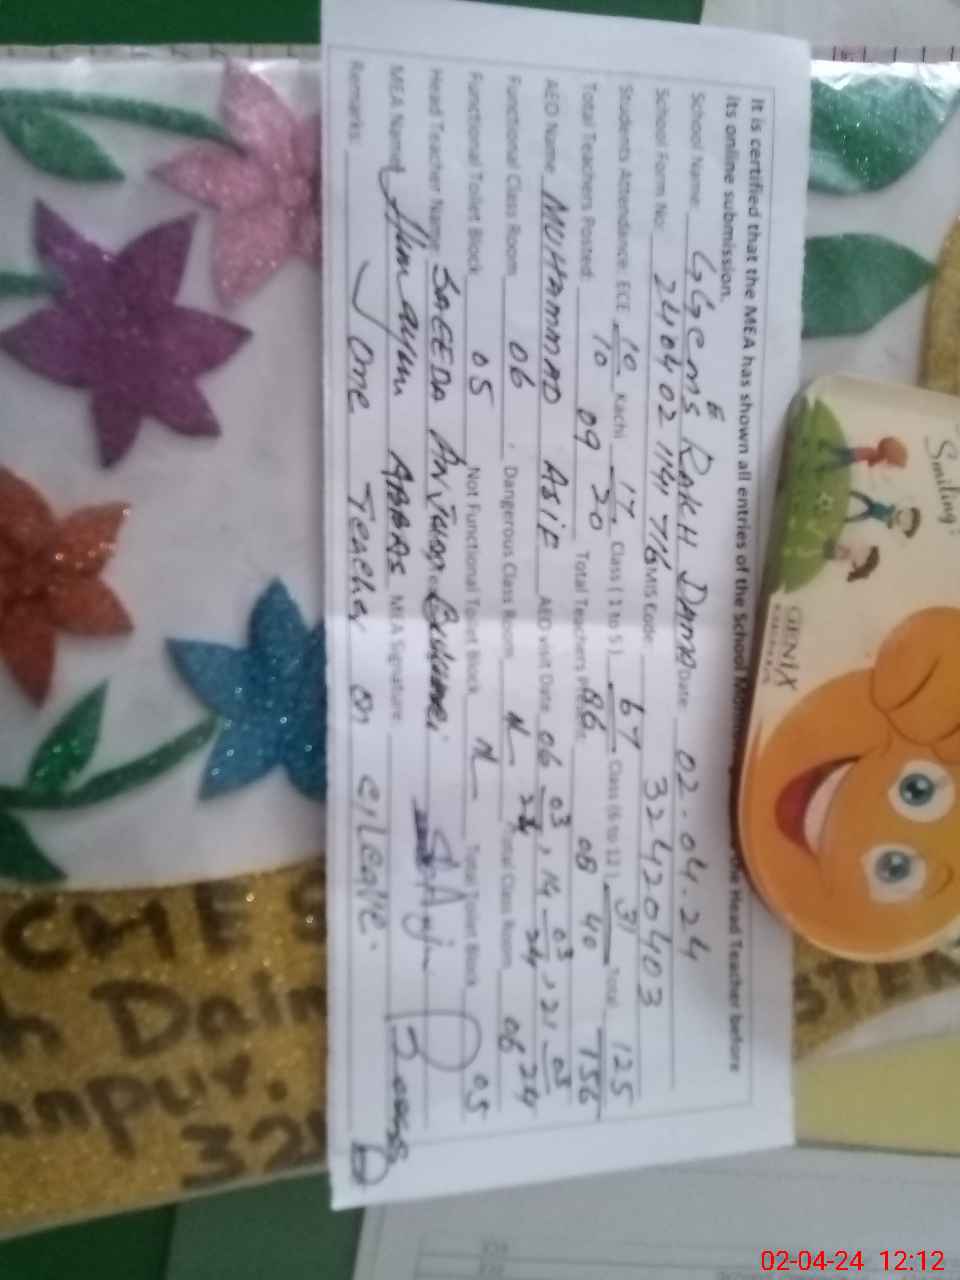 It is certified that the MEA has shown all entries of the School Head Teacher before
its online submission.
School Name: GGCMES Rakh Daima Date: 02.04.24
School Form No: 24040211417 MIS Code: 32420403
Students Attendance: ECE 10/10 Kachi 17/20 Class (1 to 5) 67/86 Class (6 to 12) 31/40 Total 125/156
Total Teachers Posted: 09 Total Teachers 08
AEO Name MUHAMMAD ASIF AEO visit Date 06 03 24, 14 03 24, 21 03 24
Functional Class Room 06 Dangerous Class Room Total Class Room 06
Functional Toilet Block 05 Not Functional Toilet Block Total Toilet Block 05
Head Teacher Name SAEEDA Anjum
MEA Name Humayun ABBAS MEA Signature
Remarks: One Teacher on C/Leave.
Smiling!
GENIX
CMES
h Daim
anpur.
32
STEM
02-04-24 12:12